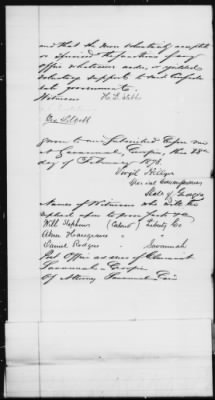 and that he never voluntarily accepted
or exercised the functions of any
office whatsoever under, or yielded
voluntary support to said Confede-
rate government.
Witness H. L.
Geo
Sworn to and subscribed before me
at Savannah, Georgia, this 28th
day of February 1878.
Virgil Hillyer
Special Commissioner
State of Georgia
Names of Witnesses who with the
Will Stephens (Colored) Liberty Co
Abner " "
Samuel Rodgers " Savannah
Post Office address of Claimant
Savannah Georgia
Of Attorney Savannah Geo